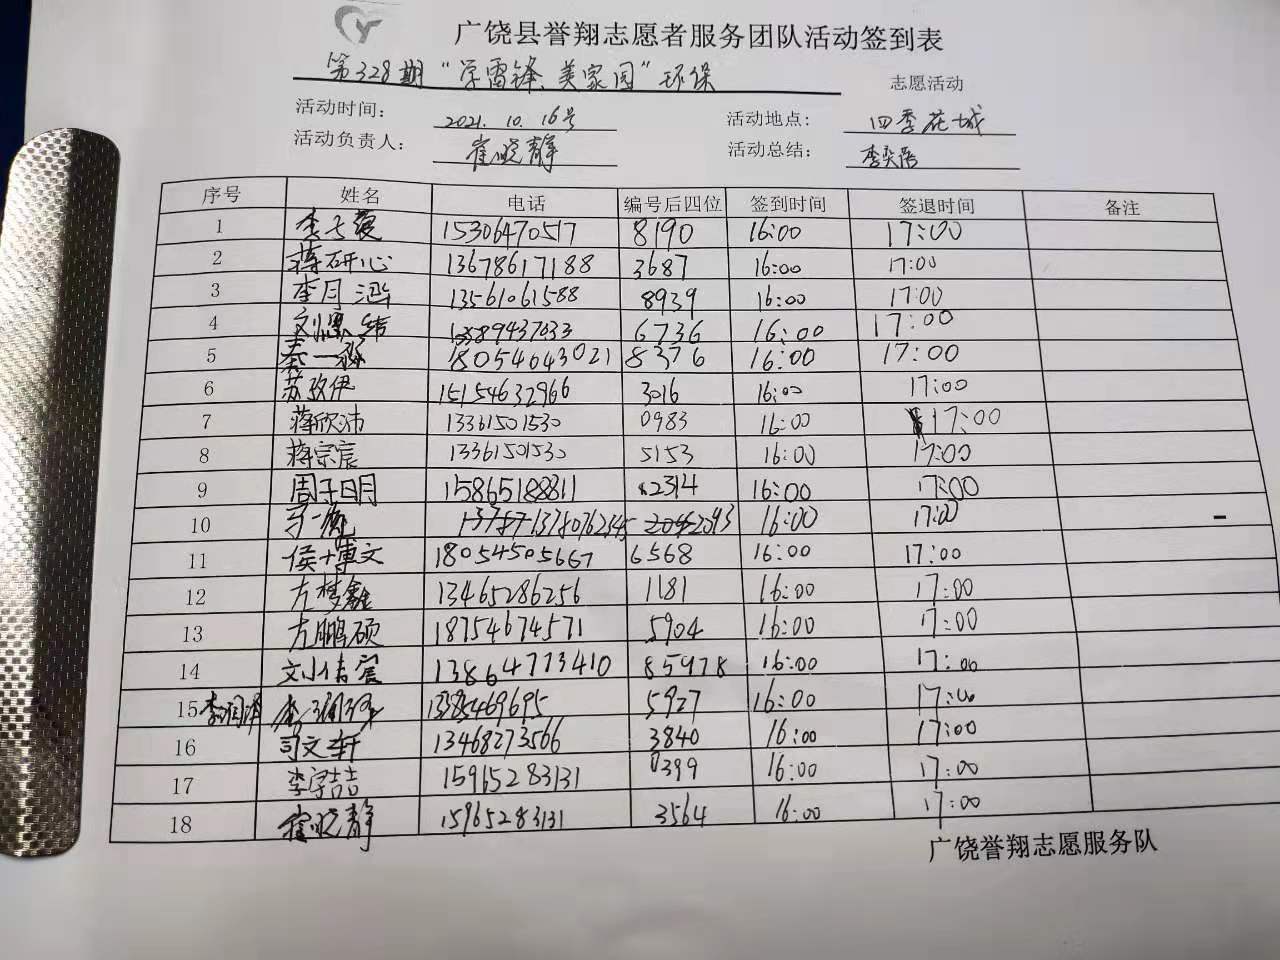 广饶县誉翔志愿者服务团队活动签到表
第328期“学雷锋、美家园”环保 志愿活动
活动时间: 2021.10.16号 活动地点: 四季花城
活动负责人: 崔晓静 活动总结: 李奕
序号 姓名 电话 编号后四位 签到时间 签退时间 备注
1 李 15306470517 8190 16:00 17:00
2 蒋研心 13678617188 3687 16:00 17:00
3 李月涵 13561061588 8939 16:00 17:00
4 刘 绪 13589437033 6736 16:00 17:00
5 秦一 18054643021 8376 16:00 17:00
6 苏玫伊 15154632966 3016 16:00 17:00
7 蒋欣沛 13361501530 0983 16:00 17:00
8 蒋宗宸 13361501530 5153 16:00 17:00
9 周子明 15865188811 2314 16:00 17:00
10 一 13780762345 2093 16:00 17:00
11 侯博文 18054505667 6568 16:00 17:00
12 左梦鑫 13465286256 1181 16:00 17:00
13 左鹏硕 18754674571 5904 16:00 17:00
14 文小倩 13864773410 85978 16:00 17:00
15 李润泽 13385469695 5927 16:00 17:00
16 司文轩 13468273566 3840 16:00 17:00
17 李宇喆 15965283131 0399 16:00 17:00
18 崔晓静 15965283131 3564 16:00 17:00
广饶誉翔志愿服务队